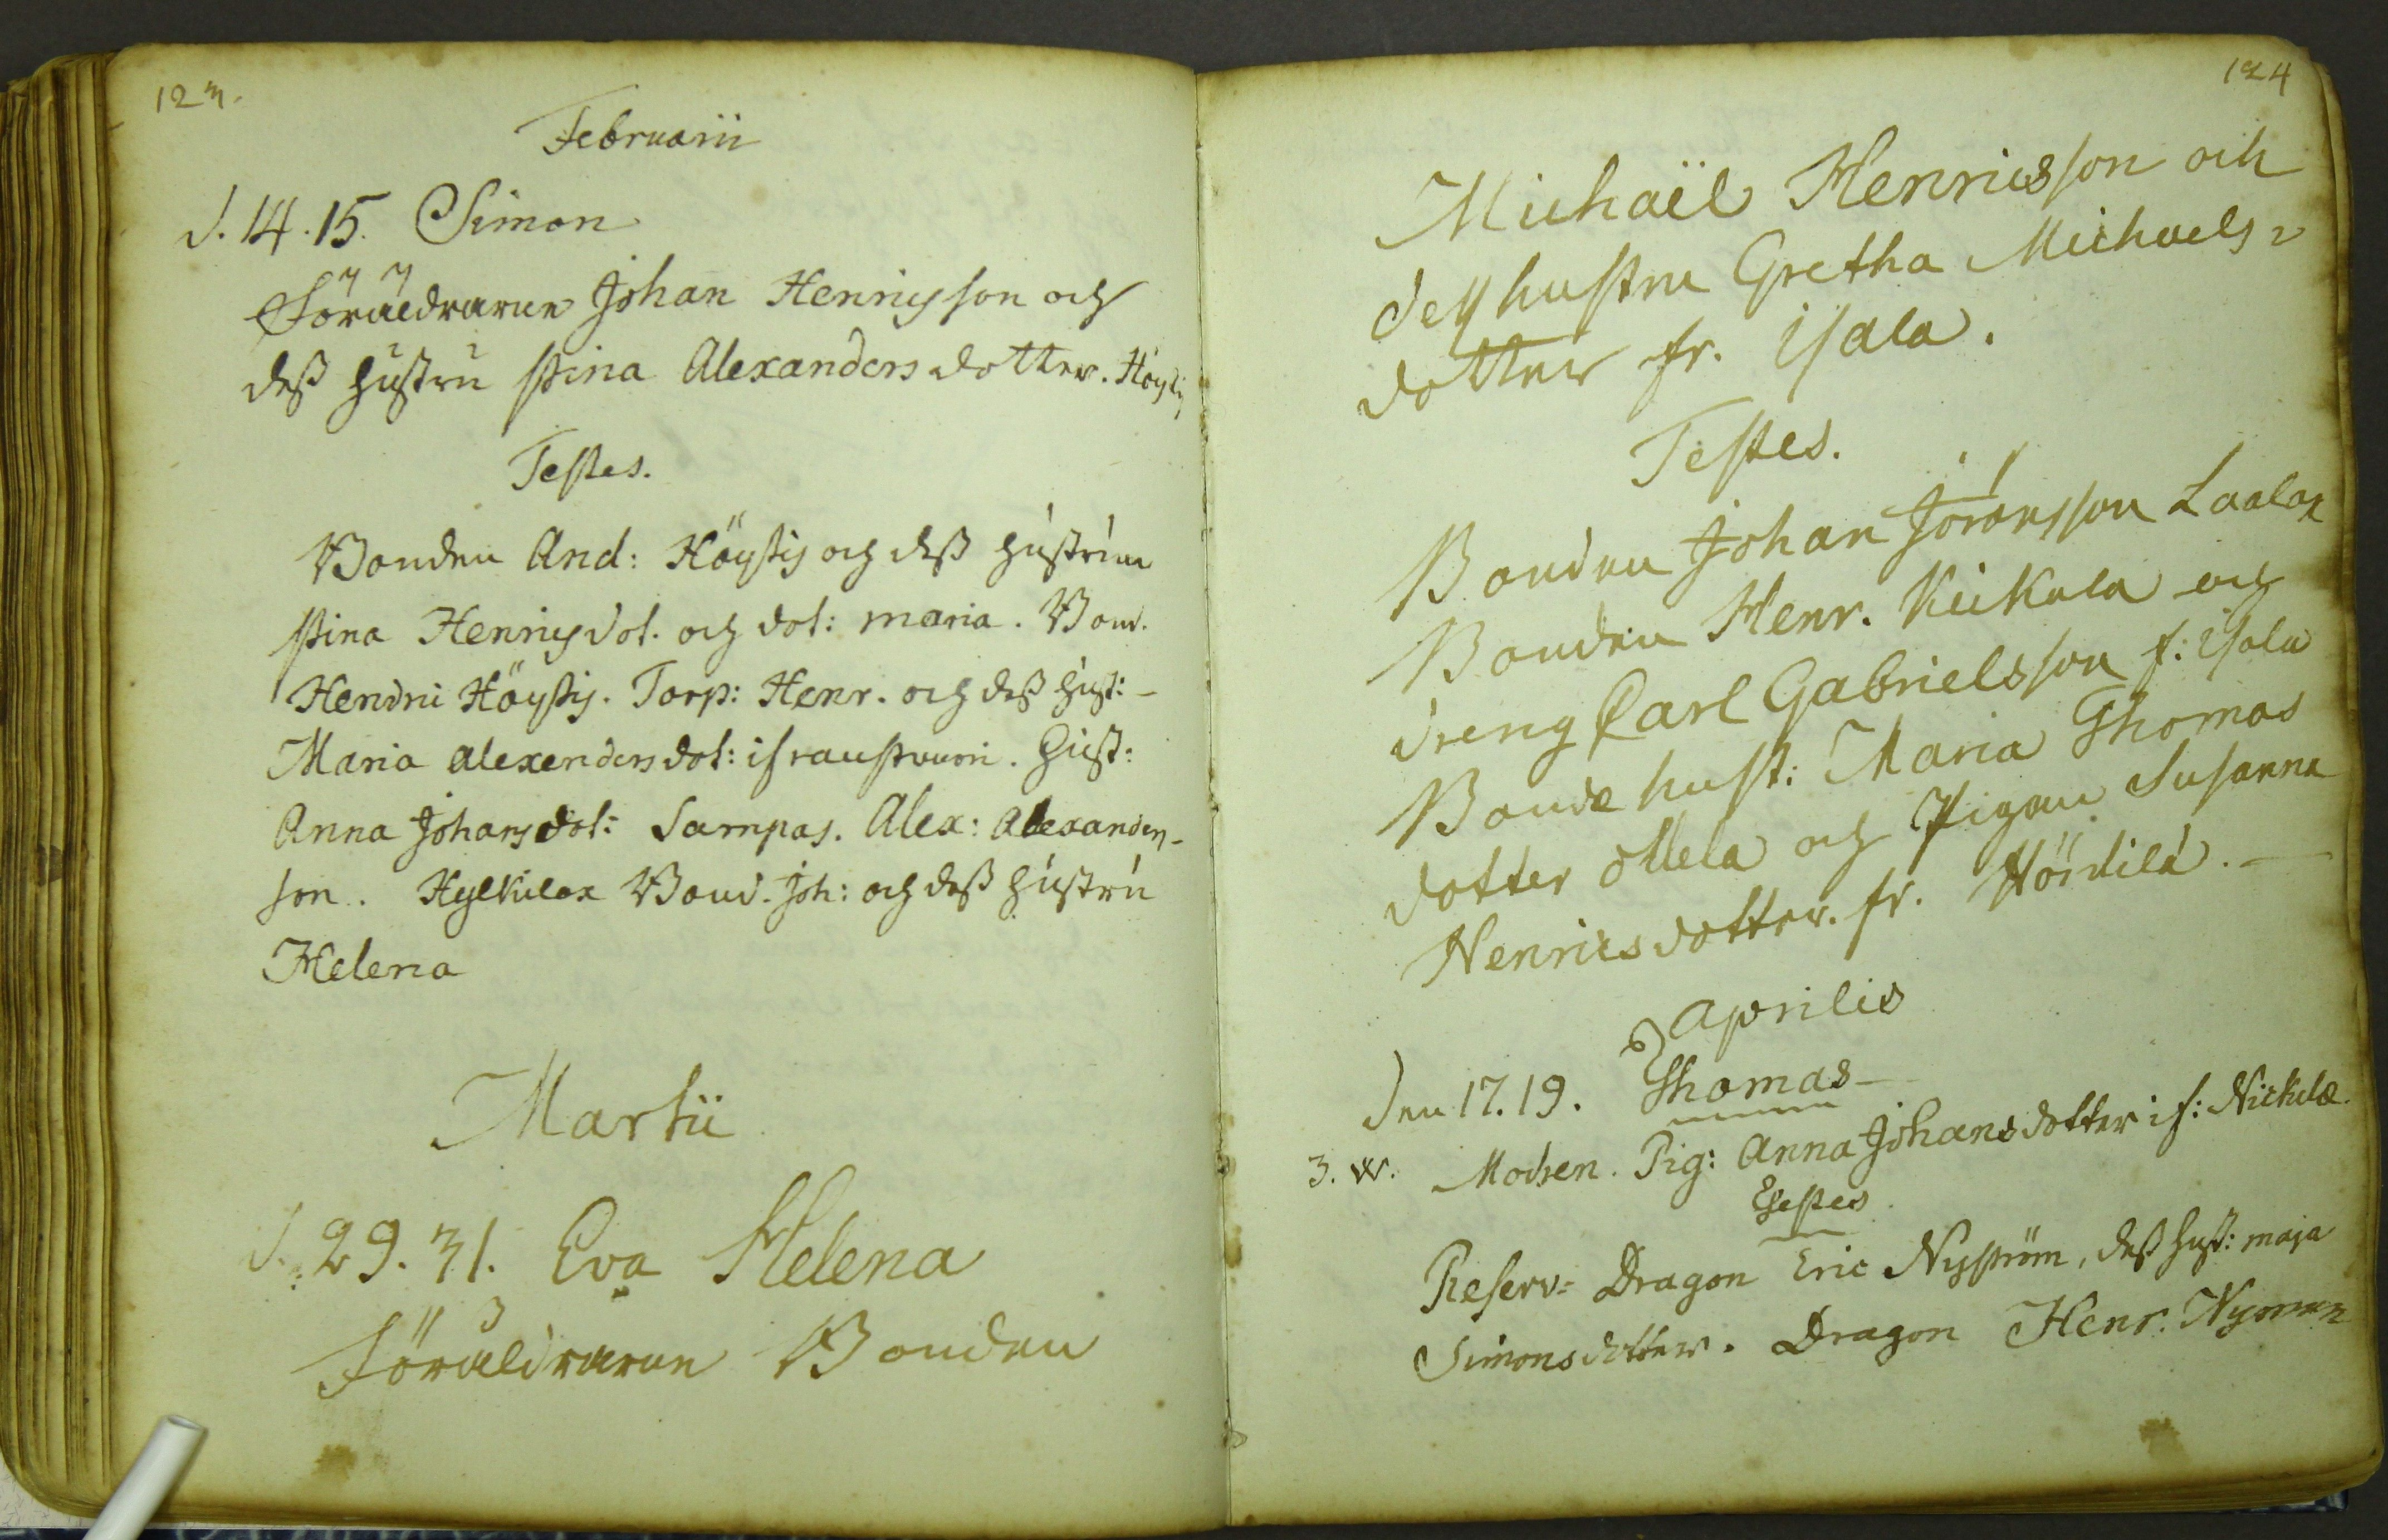 123.
Februarii
d. 14. 15. Simon
Föräldrarne Johan Henricsson och
dess hustru Stina Alexandersdotter. Höysti
Testes.
Bonden And: Höystis och dess hustrun
Stina Henricsdot. och dot: maria. Bond.
Hendric Höystis. Torp: Henr. och dess hust:
Maria alexendersdot: if: Hust:
Anna Johansdot: Sampas. Alex: Alexanders-
son. Hylkilax Bond. Joh: och dess hustru
Helena
Martii
d. 29. 31. Eva Helena
Föräldrarne Bonden
124
Michaël Henricsson och
dess hustru Gretha Michaels=
dotter fr. isala.
Testes.
Bonden Johan Jöransson Laalax
Bonden Henr. Kuikala och
dreng Carl Gabrielsson f: isala
Bonde hust: Maria Thomas
dotter och Pigan Susanna
Henricsdotter. fr.
Aprilis
den 17. 19. Thomas
3. w. Modren. Pig: Anna Johansdotter if: Nickulæ.
Testes
Reserv= Dragon Eric Nyström, dess hust: maja
Simonsdotter. Dragon Henr. Nyman